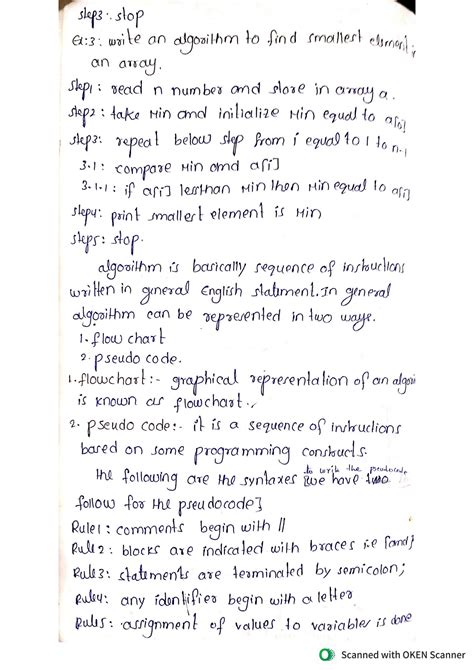 step3: stop
Ex:3: write an algorithm to find smallest element in
an array.
step1: read n number and store in array a.
step2: take Min and initialize Min equal to a[0]
step3: repeat below step from i equal to 1 to n-1
3.1: compare Min and a[i]
3.1.1: if a[i] lessthan Min then Min equal to a[i]
step4: print smallest element is Min
step5: stop.
algorithm is basically sequence of instructions
written in general English statement. In general
algorithm can be represented in two ways.
1. flow chart
2. pseudo code.
1. flowchart:- graphical representation of an algori
is known as flowchart.
2. pseudo code:- it is a sequence of instructions
based on some programming constructs.
to write the pseudocode
the following are the syntaxes [we have two
follow for the pseudocode]
Rule1: comments begin with //
Rule2: blocks are indicated with braces i.e {and}
Rule3: statements are terminated by semicolon;
Rule4: any identifier begin with a letter
Rule5: assignment of values to variables is done
Scanned with OKEN Scanner